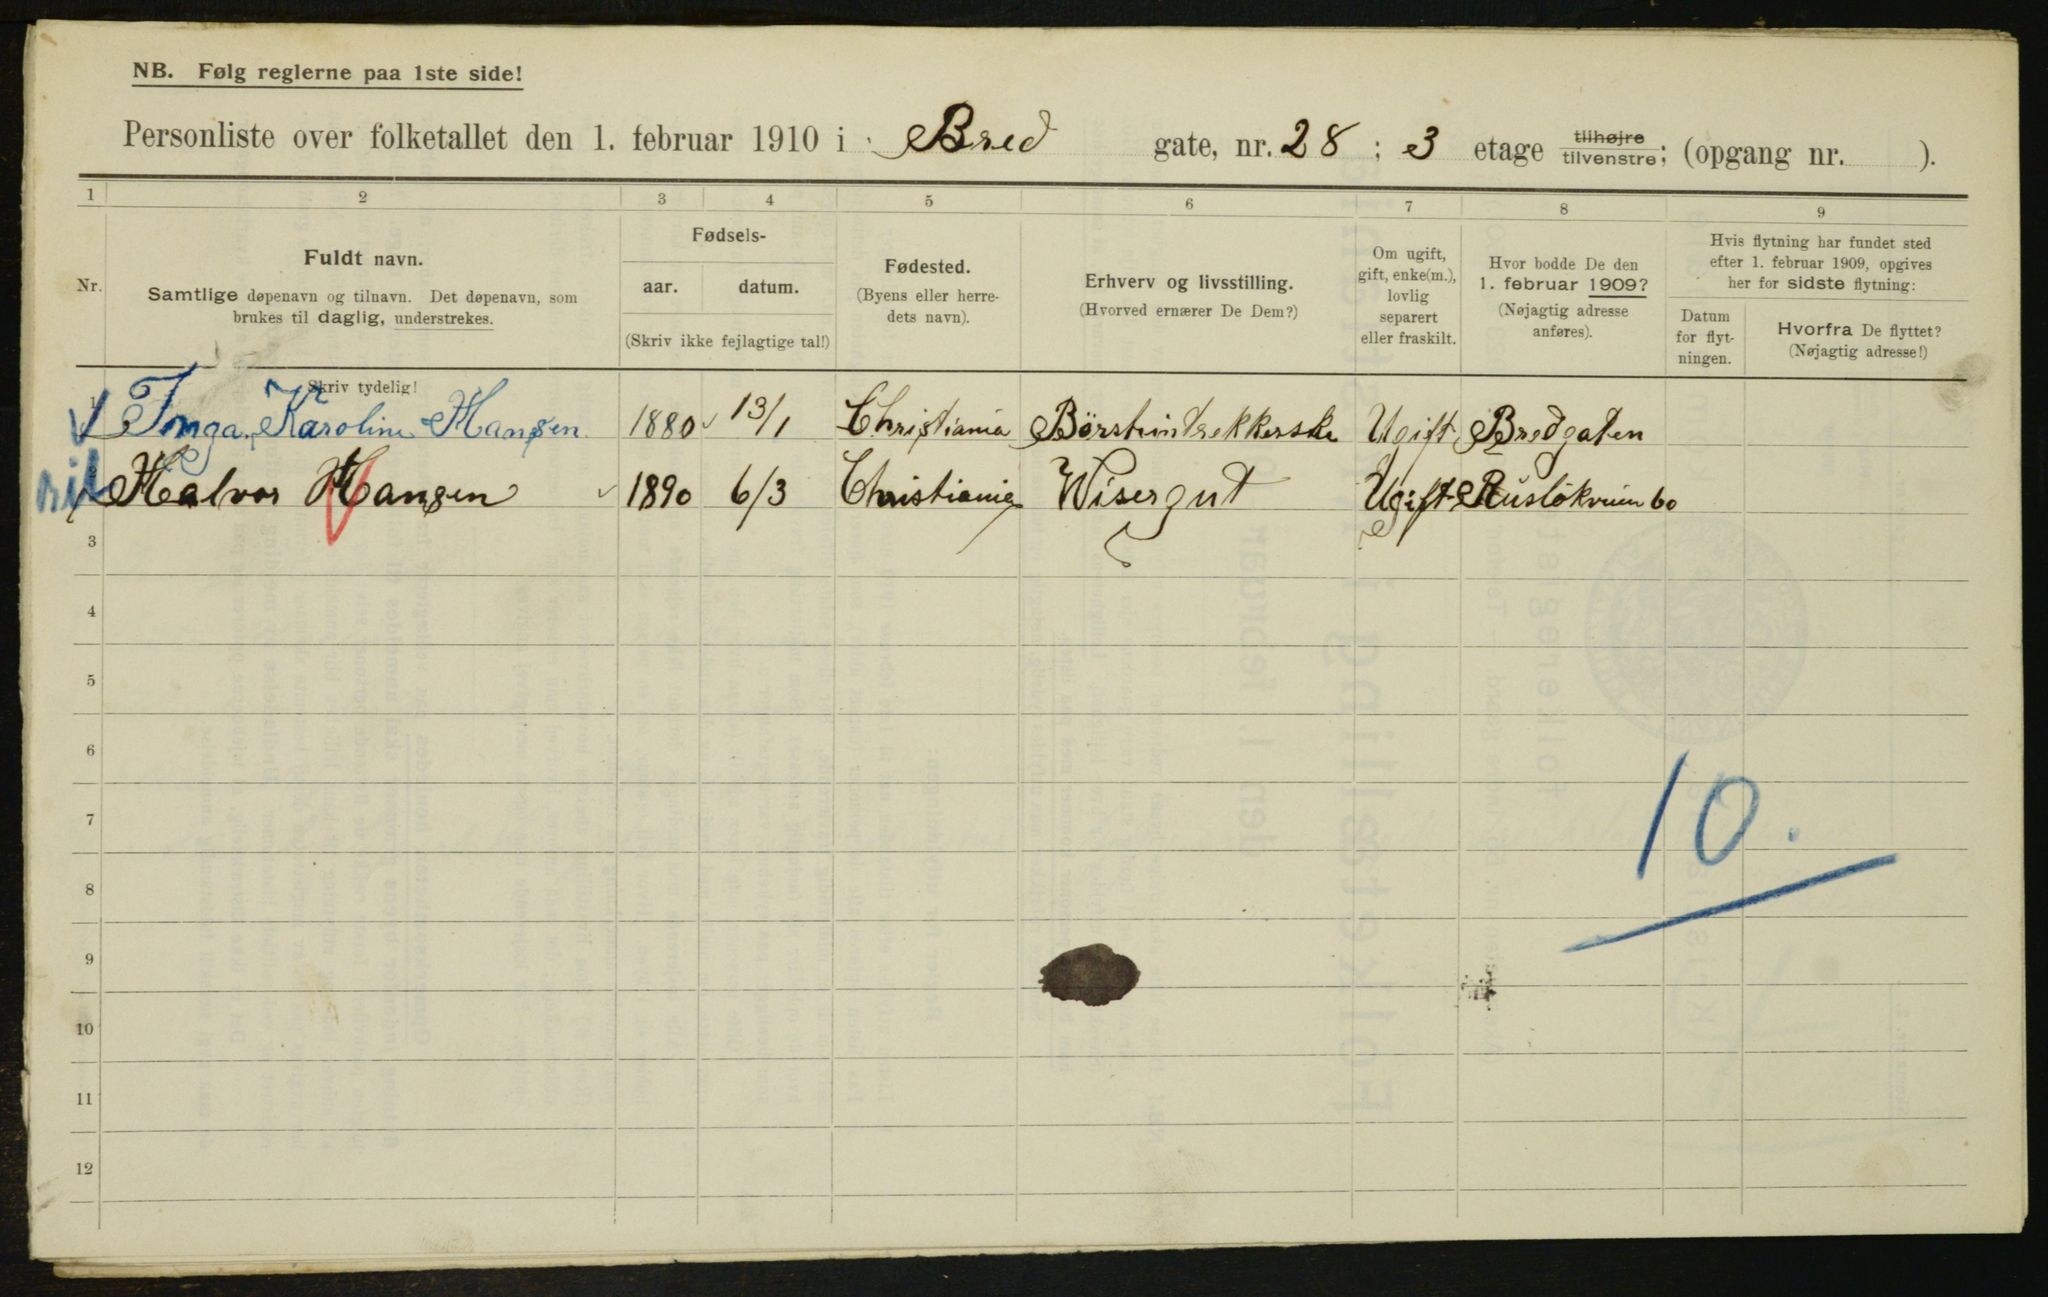 NB. Følg reglerne paa 1ste side!
Personliste over folketallet den 1. februar 1910 i Bred gate, nr. 28 ; 3 etage tilhøjre tilvenstre; (opgang nr. ).
1 2 3 4 5 6 7 8 9
Nr.
Fuldt navn.
Samtlige døpenavn og tilnavn. Det døpenavn, som
brukes til daglig, understrekes.
Skriv tydelig!
Fødsels-
aar. datum.
(Skriv ikke fejlagtige tal!)
Fødested.
(Byens eller herre-
dets navn).
Erhverv og livsstilling.
(Hvorved ernærer De Dem?)
Om ugift,
gift, enke(m.),
lovlig
separert
eller fraskilt.
Hvor bodde De den
1. februar 1909?
(Nøjagtig adresse
anføres).
Hvis flytning har fundet sted
efter 1. februar 1909, opgives
her for sidste flytning:
Datum
for flyt-
ningen.
Hvorfra De flyttet?
(Nøjagtig adresse!)
1 Inga Karoline Hansen 1880 13/1 Christiania Börsteintrekkerske Ugift Bredgaten
Halvor Hansen 1890 6/3 Christiania Wisergut Ugift Rusløkveien 60
3
4
5
6
7
8
9
10
11
12
10.